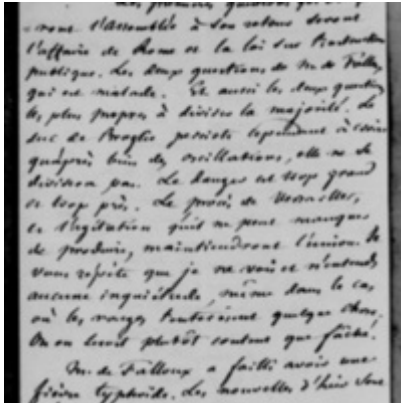 Les premières questions qui
-ront l'Assemblée à son retour seront
l'affaire de Rome et la loi sur l'instruction
publique. Les deux questions de M. de Falloux
qui est malade. Et aussi les deux questions
les plus propres à diviser la majorité. Le
duc de Broglie persiste cependant à croire
qu'après bien des oscillations, elle ne se
divisera pas. Le danger est trop grand
et trop près. Le procès de Versailles,
et l'agitation qu'il ne peut manquer
de produire, maintiendront l'union. Je
vous répète que je ne vois et n'entends
aucune inquiétude, même dans le cas
où les rouges tenteraient quelque chose.
On en serait plutôt content que fâché.
M. de Falloux a failli avoir une
fièvre typhoïde. Les nouvelles d'hier sont